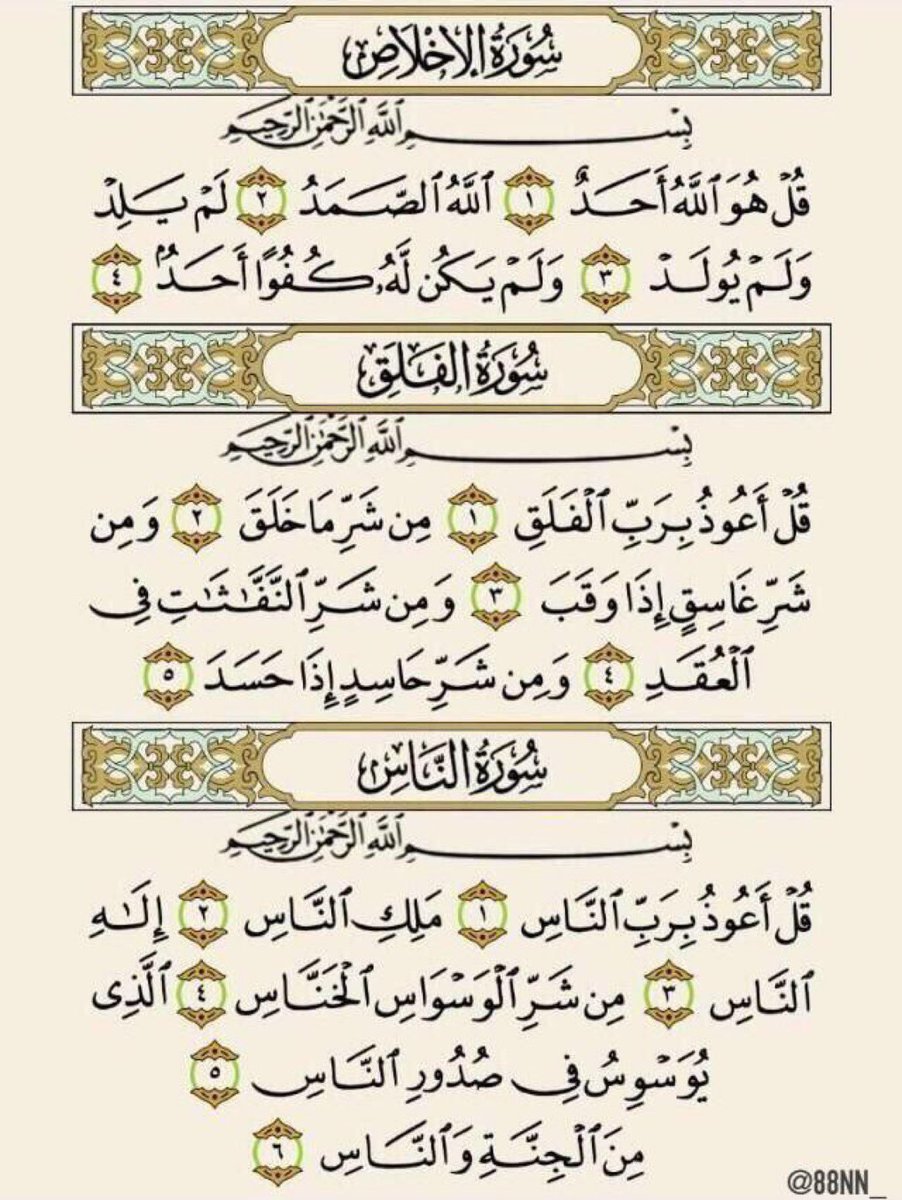 سُورَةُ الإِخْلَاصِ
بِسْمِ ٱللَّهِ ٱلرَّحْمَٰنِ ٱلرَّحِيمِ
قُلْ هُوَ ٱللَّهُ أَحَدٌ ١ ٱللَّهُ ٱلصَّمَدُ ٢ لَمْ يَلِدْ
وَلَمْ يُولَدْ ٣ وَلَمْ يَكُن لَّهُۥ كُفُوًا أَحَدٌۢ ٤
سُورَةُ الفَلَقِ
بِسْمِ ٱللَّهِ ٱلرَّحْمَٰنِ ٱلرَّحِيمِ
قُلْ أَعُوذُ بِرَبِّ ٱلْفَلَقِ ١ مِن شَرِّ مَا خَلَقَ ٢ وَمِن
شَرِّ غَاسِقٍ إِذَا وَقَبَ ٣ وَمِن شَرِّ ٱلنَّفَّٰثَٰتِ فِى
ٱلْعُقَدِ ٤ وَمِن شَرِّ حَاسِدٍ إِذَا حَسَدَ ٥
سُورَةُ النَّاسِ
بِسْمِ ٱللَّهِ ٱلرَّحْمَٰنِ ٱلرَّحِيمِ
قُلْ أَعُوذُ بِرَبِّ ٱلنَّاسِ ١ مَلِكِ ٱلنَّاسِ ٢ إِلَٰهِ
ٱلنَّاسِ ٣ مِن شَرِّ ٱلْوَسْوَاسِ ٱلْخَنَّاسِ ٤ ٱلَّذِى
يُوَسْوِسُ فِى صُدُورِ ٱلنَّاسِ ٥
مِنَ ٱلْجِنَّةِ وَٱلنَّاسِ ٦
@88NN_